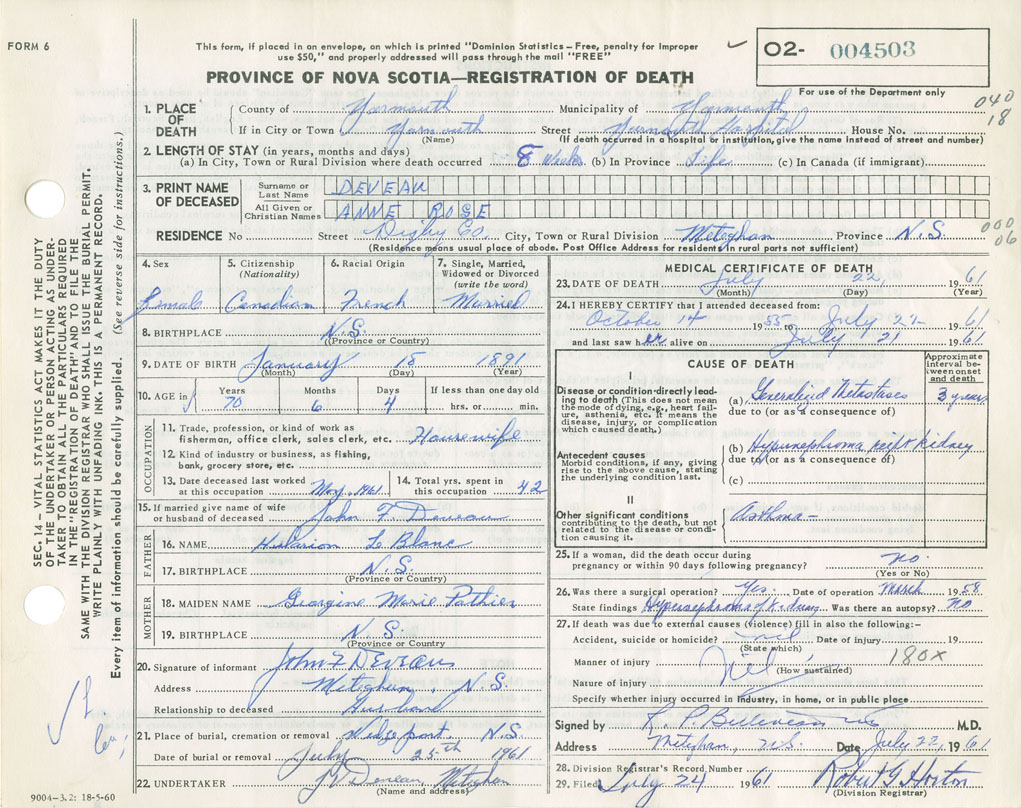 FORM 6
This form, if placed in an envelope, on which is printed "Dominion Statistics – Free, penalty for improper
use $50," and properly addressed will pass through the mail "FREE"
✓ O2- 004503
PROVINCE OF NOVA SCOTIA—REGISTRATION OF DEATH
For use of the Department only
040
18
1. PLACE OF DEATH
County of Yarmouth Municipality of Yarmouth
If in City or Town Yarmouth Street Yarmouth Hospital House No.
(Name) (If death occurred in a hospital or institution, give the name instead of street and number)
2. LENGTH OF STAY (in years, months and days)
(a) In City, Town or Rural Division where death occurred 8 Weeks (b) In Province Life (c) In Canada (if immigrant)
3. PRINT NAME OF DECEASED
Surname or Last Name DEVEAU
All Given or Christian Names ANNE ROSE
RESIDENCE No Street Digby Co City, Town or Rural Division Meteghan Province N.S.
000
06
(Residence means usual place of abode. Post Office Address for residents in rural parts not sufficient)
4. Sex Female
5. Citizenship (Nationality) Canadian
6. Racial Origin French
7. Single, Married, Widowed or Divorced (write the word) Married
8. BIRTHPLACE N.S.
(Province or Country)
9. DATE OF BIRTH January 18 1891
(Month) (Day) (Year)
10. AGE in Years 70 Months 6 Days 4 If less than one day old hrs. or min.
OCCUPATION
11. Trade, profession, or kind of work as
fisherman, office clerk, sales clerk, etc. Housewife
12. Kind of industry or business, as fishing,
bank, grocery store, etc.
13. Date deceased last worked at this occupation May, 1961
14. Total yrs. spent in this occupation 42
15. If married give name of wife
or husband of deceased John F. Deveau
FATHER
16. NAME Hilarion Le Blanc
17. BIRTHPLACE N.S.
(Province or Country)
MOTHER
18. MAIDEN NAME Georgine Marie Pothier
19. BIRTHPLACE N.S.
(Province or Country
20. Signature of informant John F Deveau
Address Meteghan, N.S.
Relationship to deceased Husband
21. Place of burial, cremation or removal Wedgeport, N.S.
Date of burial or removal July 25th 1961
22. UNDERTAKER Deveau, Meteghan
(Name and address)
9004-3.2: 18-5-60
MEDICAL CERTIFICATE OF DEATH
23. DATE OF DEATH July 22, 1961
(Month) (Day) (Year)
24. I HEREBY CERTIFY that I attended deceased from:
October 14 1955 to July 21 1961
and last saw her alive on July 21 1961
CAUSE OF DEATH
Approximate interval between onset and death
I
Disease or condition directly leading to death (This does not mean
the mode of dying, e.g., heart failure, asthenia, etc. It means the
disease, injury, or complication
which caused death.)
(a) Generalized Metastases 3 years
due to (or as a consequence of)
Antecedent causes
Morbid conditions, if any, giving
rise to the above cause, stating
the underlying condition last.
(b) Hypernephroma right kidney
due to (or as a consequence of)
(c)
II
Other significant conditions
contributing to the death, but not
related to the disease or condition causing it.
Asthma –
25. If a woman, did the death occur during
pregnancy or within 90 days following pregnancy? no.
(Yes or No)
26. Was there a surgical operation? Yes. Date of operation March 1958
State findings Hypernephroma of kidney Was there an autopsy? no
27. If death was due to external causes (violence) fill in also the following:–
Accident, suicide or homicide? nil Date of injury 19
(State which)
Manner of injury Nil 180X
(How sustained)
Nature of injury
Specify whether injury occurred in industry, in home, or in public place
Signed by R. P. Belliveau M.D.
Address Meteghan, N.S. Date July 22, 1961
28. Division Registrar's Record Number
29. Filed July 24 1961 Robert G Horton
(Division Registrar)
SEC. 14 – VITAL STATISTICS ACT MAKES IT THE DUTY
OF THE UNDERTAKER OR PERSON ACTING AS UNDER-
TAKER TO OBTAIN ALL THE PARTICULARS REQUIRED
IN THE "REGISTRATION OF DEATH" AND TO FILE THE
SAME WITH THE DIVISION REGISTRAR WHO SHALL ISSUE THE BURIAL PERMIT.
WRITE PLAINLY WITH UNFADING INK. THIS IS A PERMANENT RECORD.
Every item of information should be carefully supplied. (See reverse side for instructions.)